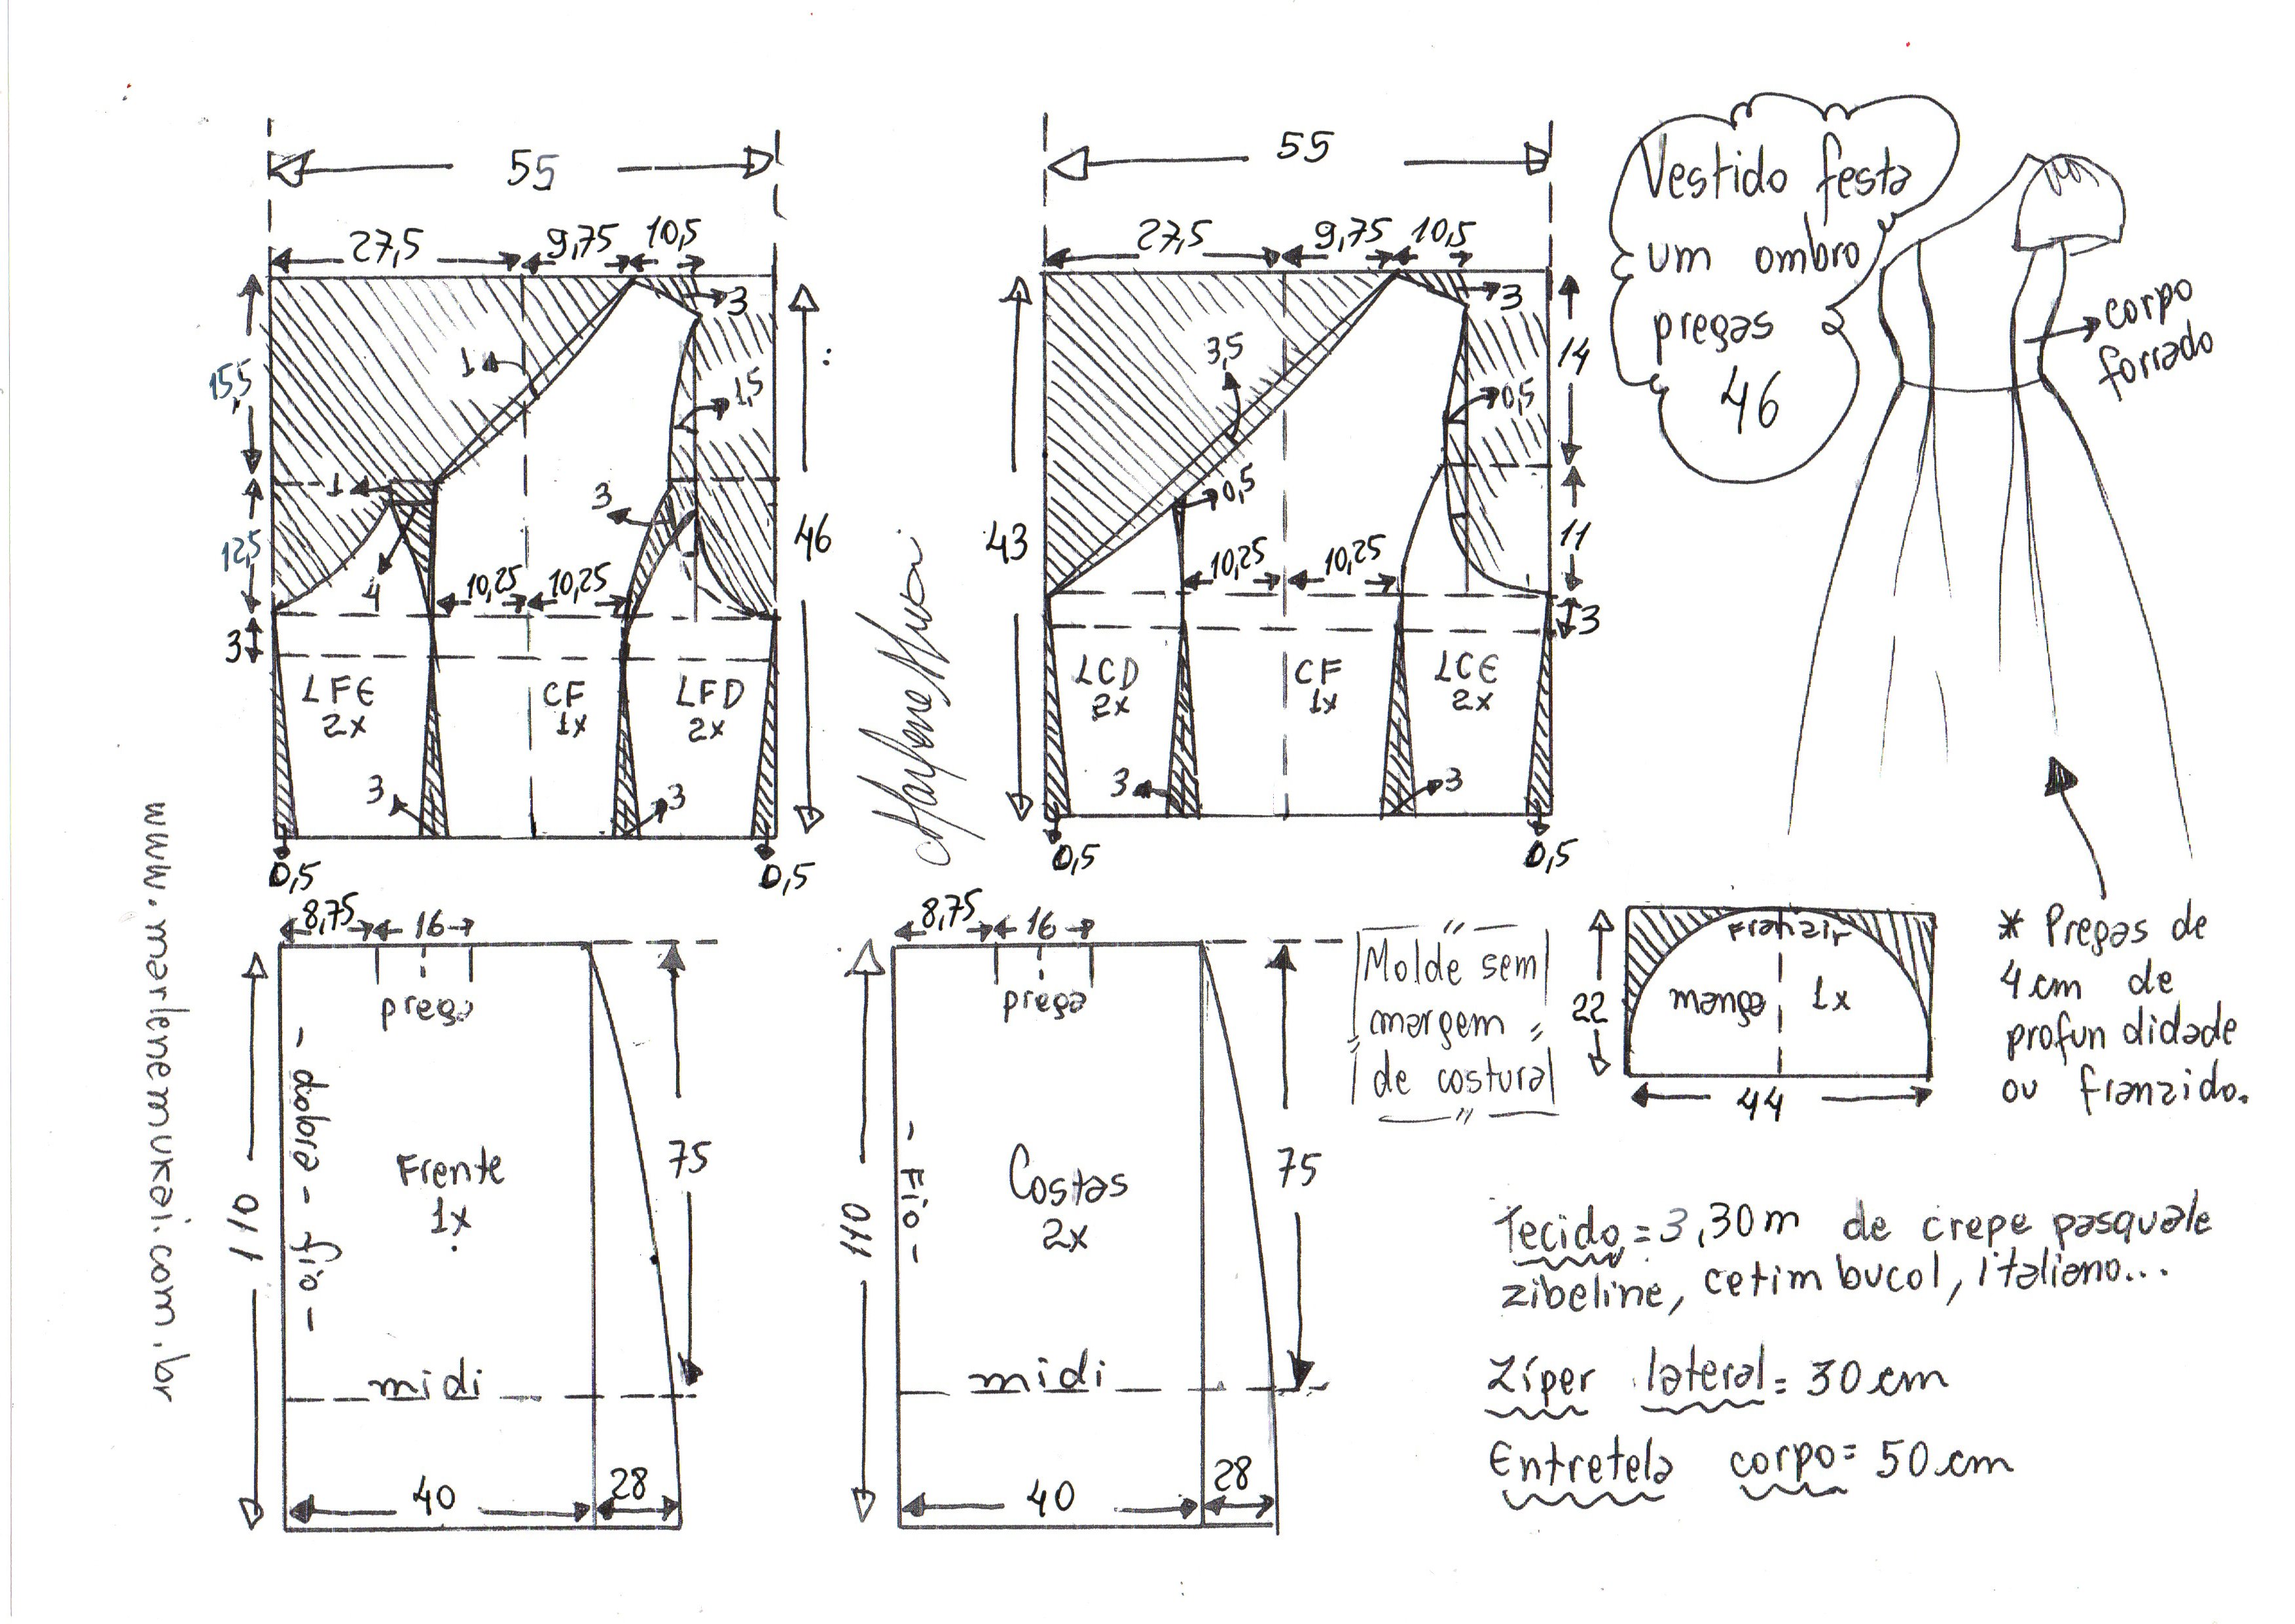 55
27,5 9,75 10,5
3
1
15,5
1,5
1
3
12,5
4
10,25 10,25
46
3
LFE
2x
CF
1x
LFD
2x
3
3
0,5
0,5
55
27,5 9,75 10,5
3
3,5
14
0,5
0,5
43
11
10,25 10,25
3
LCD
2x
CF
1x
LCE
2x
3
3
0,5
0,5
Vestido festa
um ombro
pregas
46
corpo
forrado
www.marlenemukai.com.br
8,75 16
prega
110
- dobra - fio -
Frente
1x
75
midi
40
28
8,75 16
prega
110
- Fio -
Costas
2x
75
midi
40
28
Molde sem
margem
de costura
Franzir
manga 1x
22
44
* Pregas de
4cm de
profundidade
ou franzido.
Tecido = 3,30m de crepe pasquale
zibeline, cetim bucol, italiano...
Zíper lateral = 30cm
Entretela corpo = 50cm